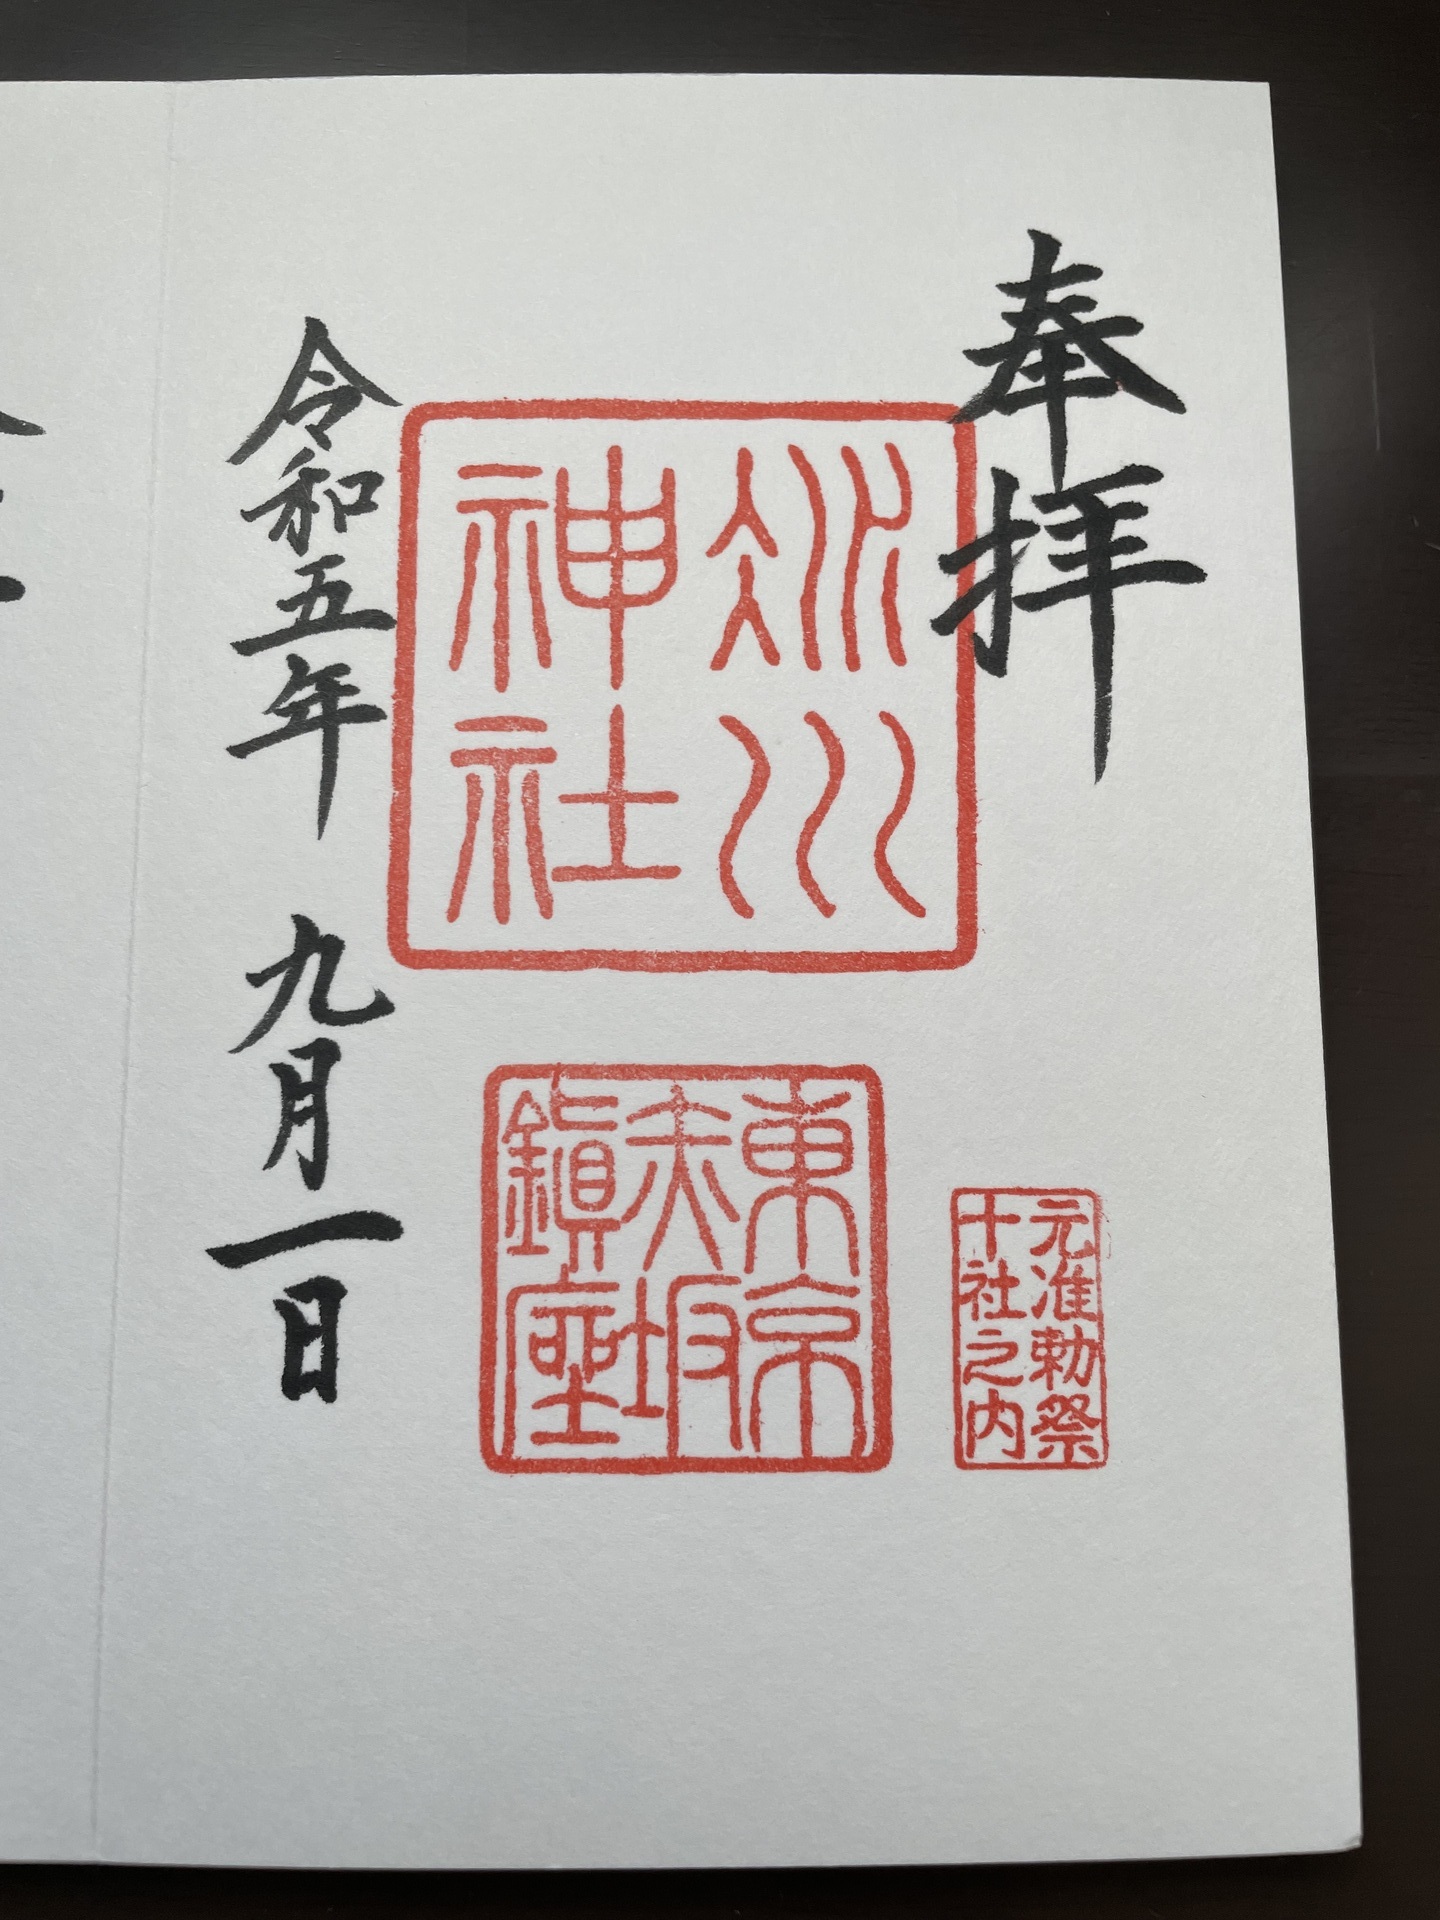 奉拝
氷川
神社
元准勅祭
十社之内
東京
赤坂
鎮座
令和五年 九月一日